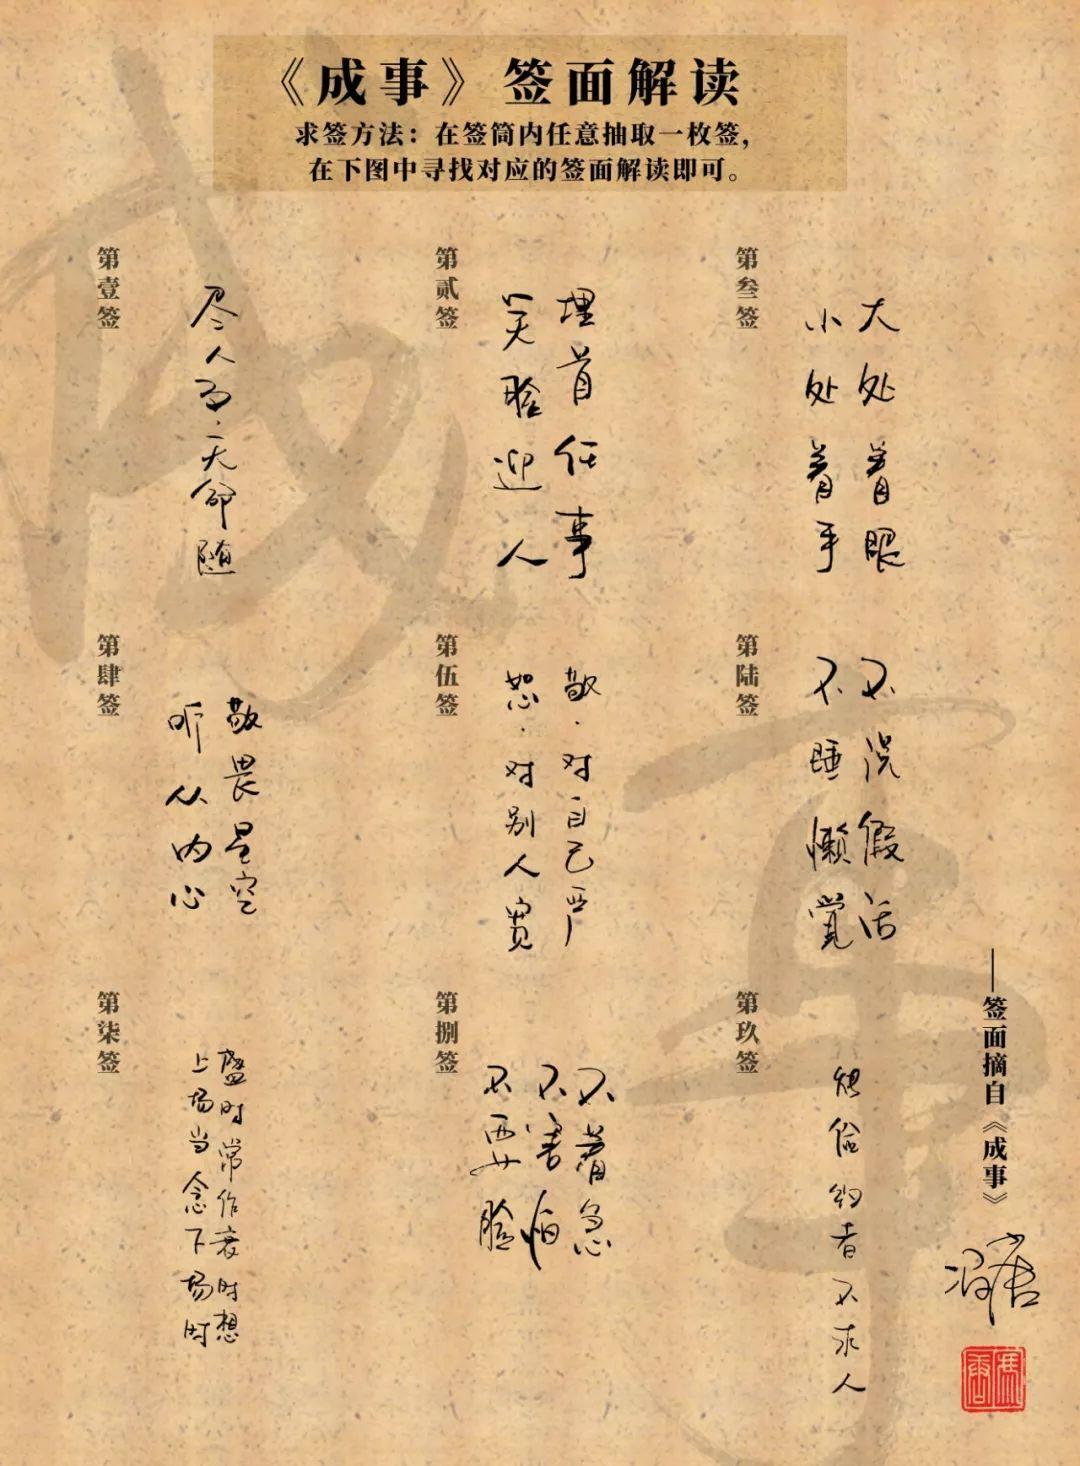 《成事》签面解读
求签方法：在签筒内任意抽取一枚签，
在下图中寻找对应的签面解读即可。
第壹签
尽人力·天命随
第贰签
埋首任事
笑脸迎人
第叁签
大处着眼
小处着手
第肆签
敬畏星空
听从内心
第伍签
敬·对自己严
恕·对别人宽
第陆签
不说假话
不睡懒觉
第柒签
盛时常作衰时想
上场当念下场时
第捌签
不着急
不害怕
不要脸
第玖签
能俭约者不求人
——签面摘自《成事》
冯唐
成事